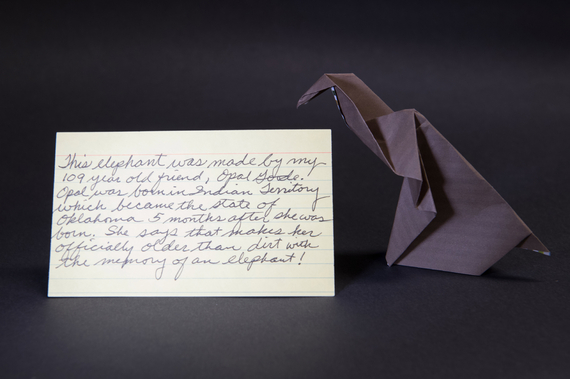 This elephant was made by my
109 year old friend, Opal Goode.
Opal was born in Indian Territory
which became the state of
Oklahoma 5 months after she was
born. She says that makes her
officially older than dirt with
the memory of an elephant!